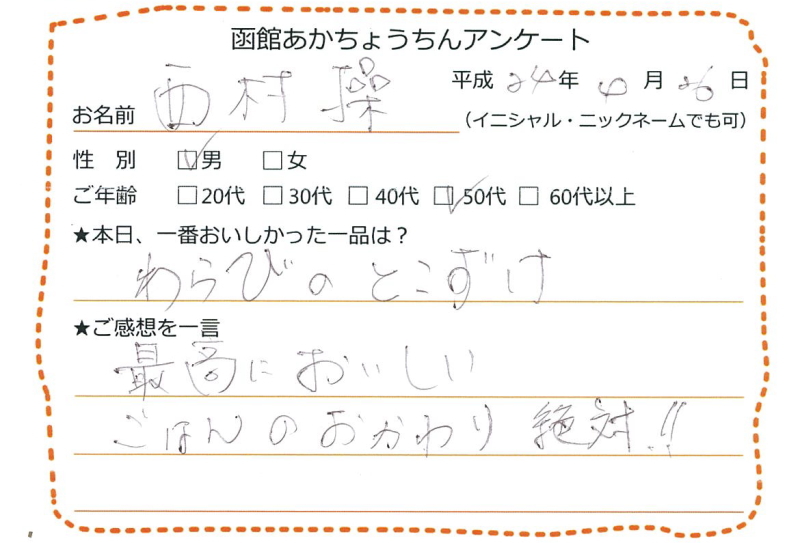 函館あかちょうちんアンケート
平成24年4月26日
お名前 西村 操
（イニシャル・ニックネームでも可）
性 別 ☑男 □女
ご年齢 □20代 □30代 □40代 ☑50代 □60代以上
★本日、一番おいしかった一品は？
わらびのとこずけ
★ご感想を一言
最高においしい
ごはんのおかわり絶対!!